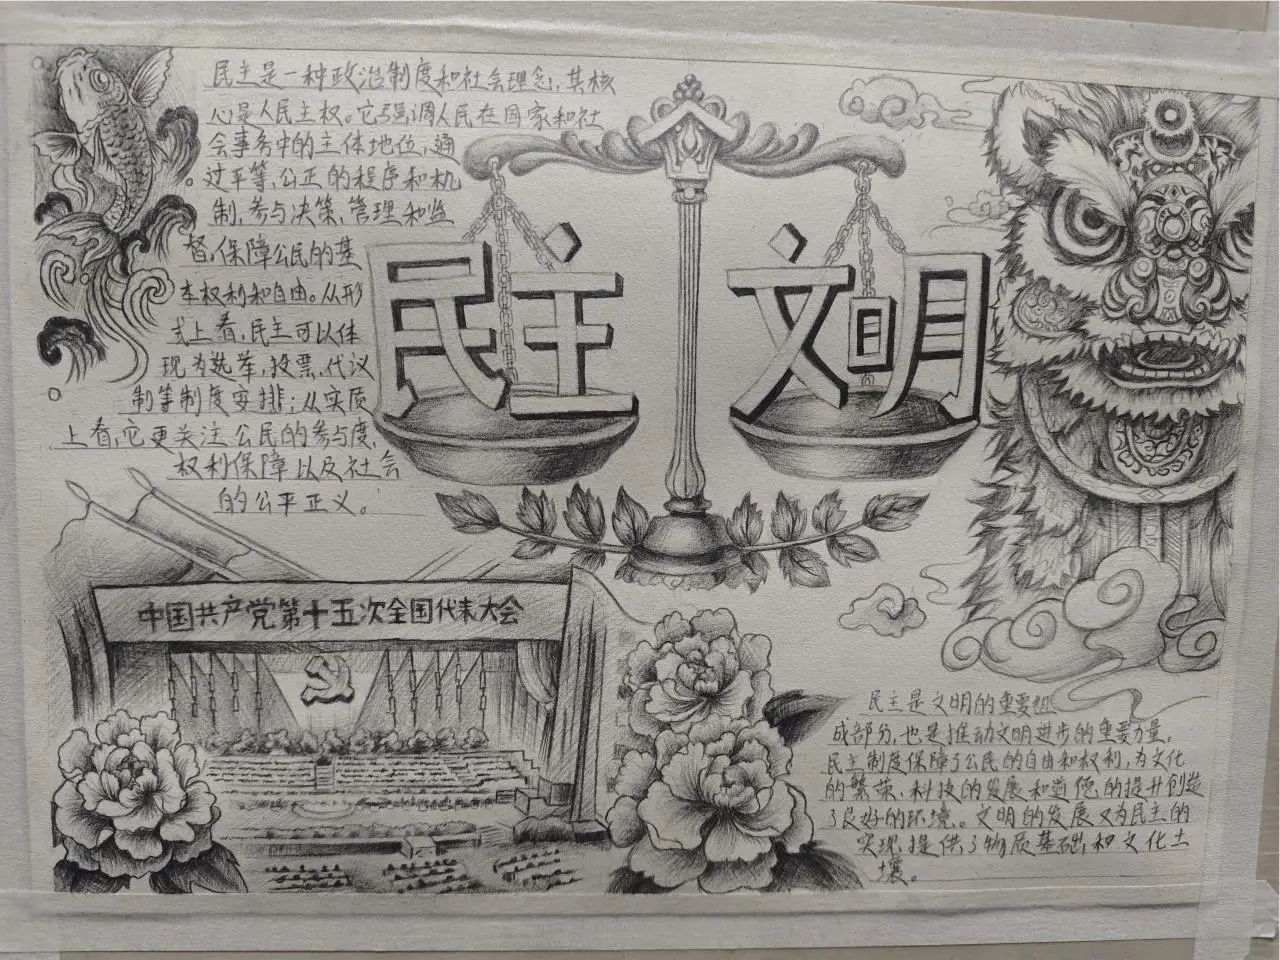 民主是一种政治制度和社会理念,其核
心是人民主权。它强调人民在国家和社
会事务中的主体地位,通
过平等、公正的程序和机
制,参与决策、管理和监
督,保障公民的基
本权利和自由。从形
式上看,民主可以体
现为选举,投票、代议
制等制度安排;从实质
上看,它更关注公民的参与度,
权利保障以及社会
的公平正义。
民主 文明
中国共产党第十五次全国代表大会
民主是文明的重要组
成部分,也是推动文明进步的重要力量。
民主制度保障了公民的自由和权利,为文化
的繁荣、科技的发展和道德的提升创造
了良好的环境。文明的发展又为民主的
实现提供了物质基础和文化土
壤。